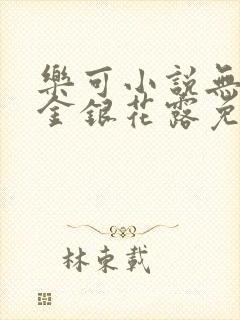 樂可小說無
金銀花露免
林東載